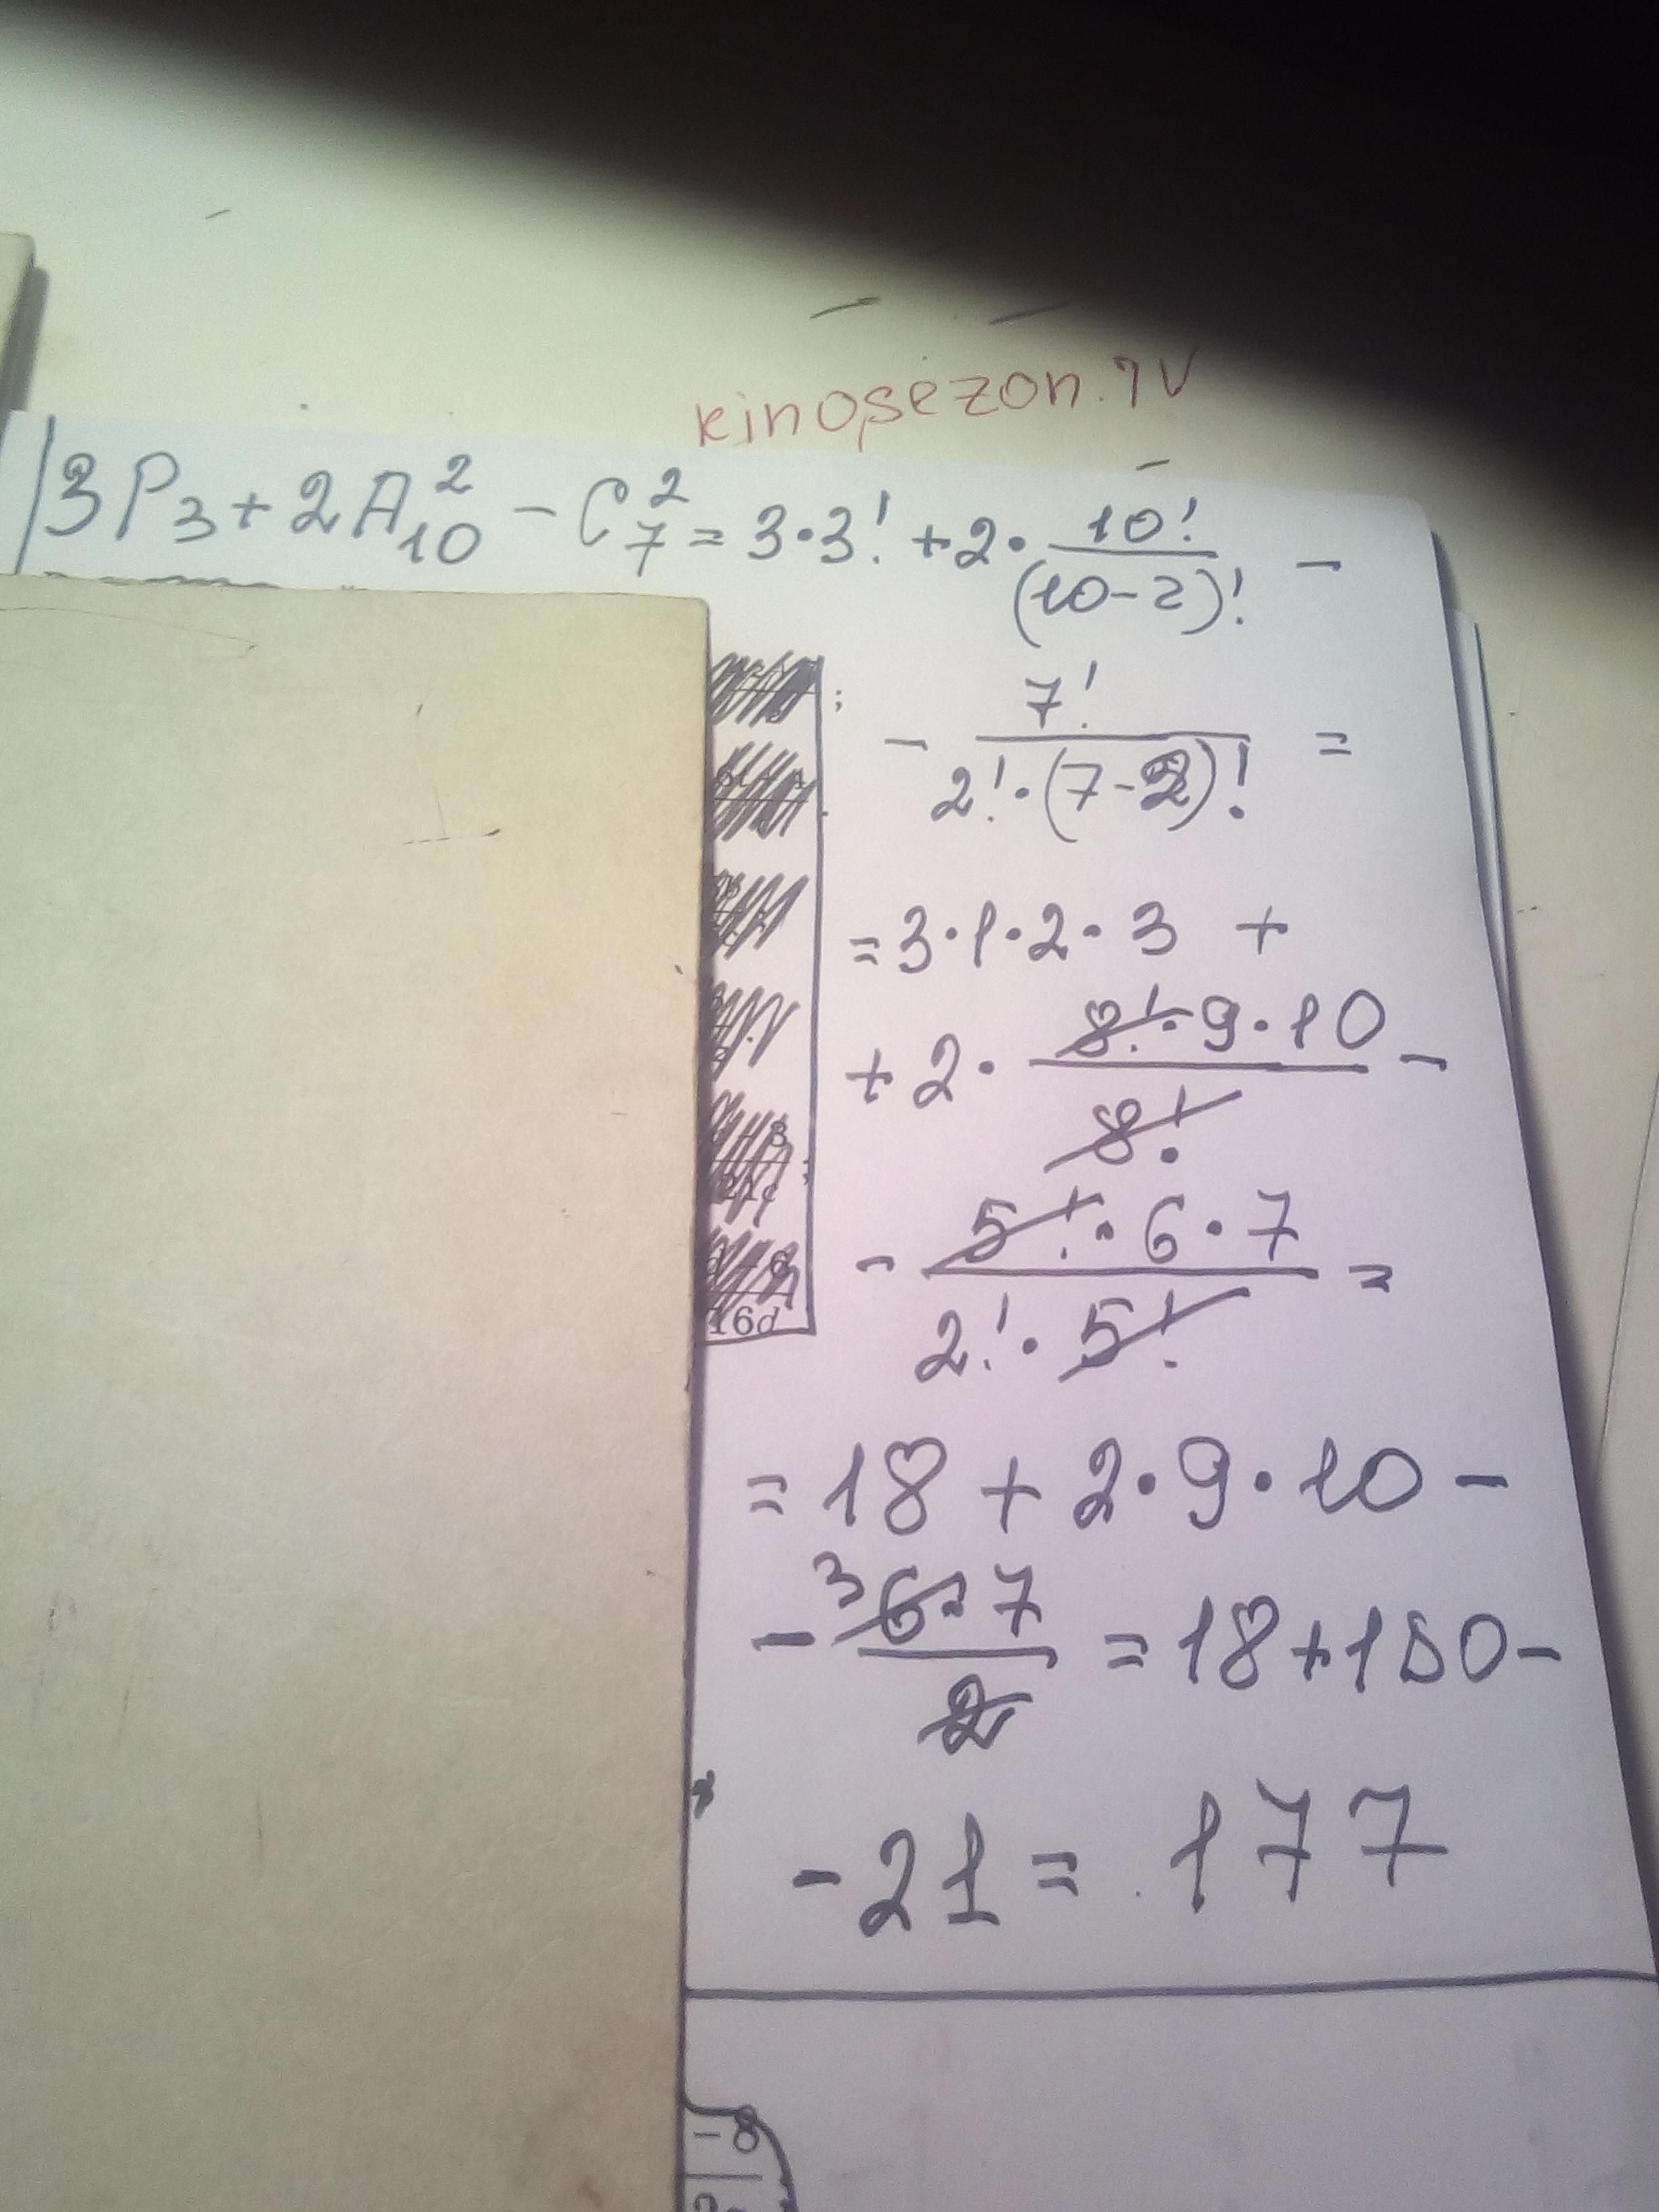 kinosezon.TV
3P₃ + 2A₁₀² - C₇² = 3·3! + 2· 10!/(10-2)! -
- 7!/(2!·(7-2)!) =
= 3·1·2·3 +
+ 2· 8!·9·10/8! -
- 5!·6·7/(2!·5!) =
= 18 + 2·9·10 -
- 6·7/2 3 = 18+180 -
- 21 = 177
16d
- 8